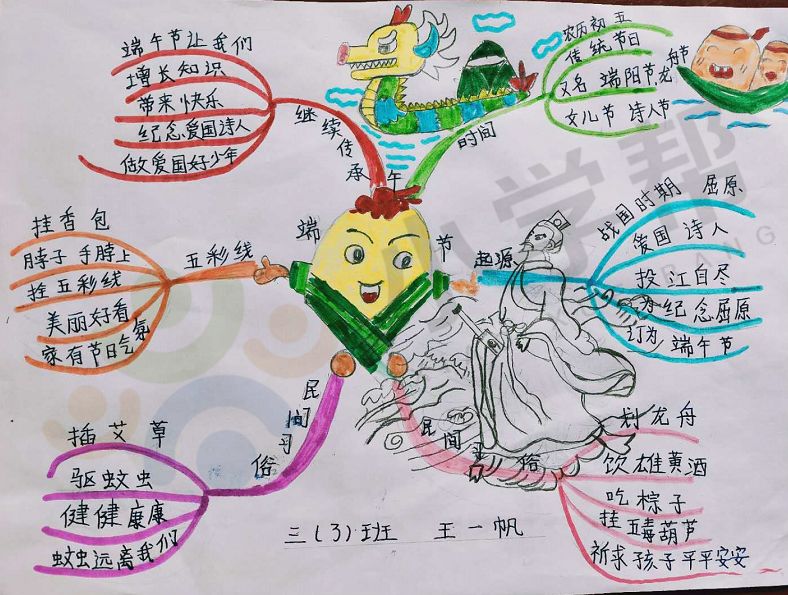 端午节
继续传承
端午节让我们
增长知识
带来快乐
纪念爱国诗人
做爱国好少年
时间
农历初五
传统节日
又名 端阳节 龙舟节
女儿节 诗人节
五彩线
挂香包
脖子 手脖上
拴五彩线
美丽好看
家有节日气氛
起源
战国时期 屈原
爱国 诗人
投江自尽
为纪念屈原
订为 端午节
民间习俗
插艾草
驱蚊虫
健健康康
蚊虫远离我们
民间习俗
划龙舟
饮雄黄酒
吃粽子
挂五毒葫芦
祈求孩子平平安安
三(3)班 王一帆
小学帮